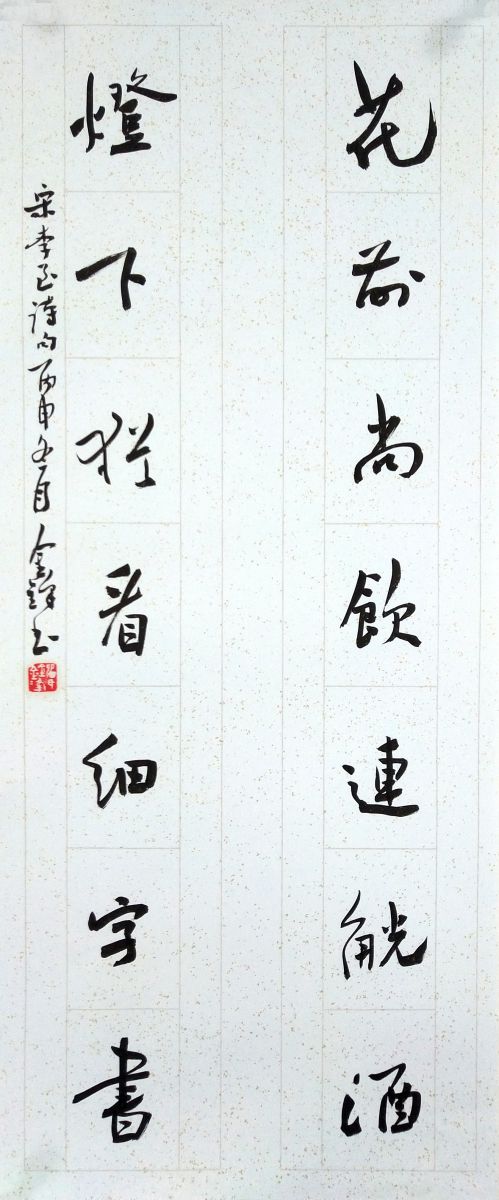 花前尚飲連觥酒
燈下猶看細字書
宋李至詩句丙申冬月金书